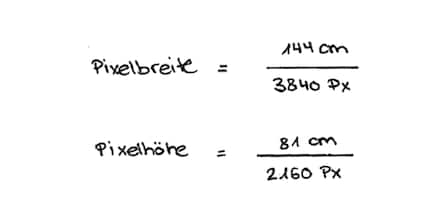 Pixelbreite = 144 cm / 3840 Px
Pixelhöhe = 81 cm / 2160 Px